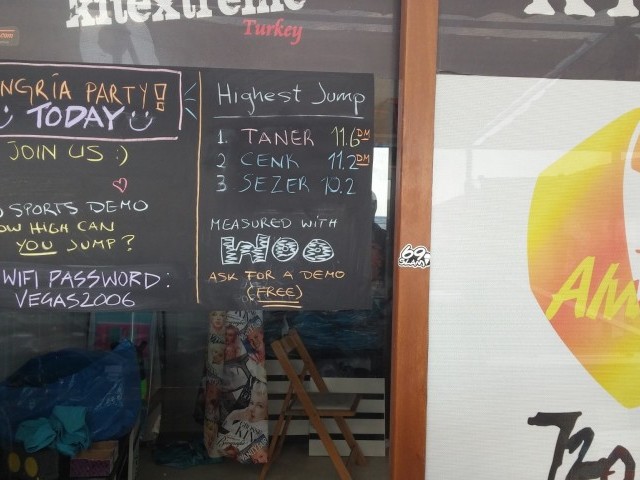 kitextreme
Turkey
NGRIA PARTY!
TODAY
JOIN US :)
SPORTS DEMO
OW HIGH CAN
YOU JUMP?
WIFI PASSWORD:
VEGAS2006
Highest Jump
1. TANER 11.6 DM
2 CENK 11.2 DM
3 SEZER 10.2
MEASURED WITH
WOO
ASK FOR A DEMO
(FREE)
69
720